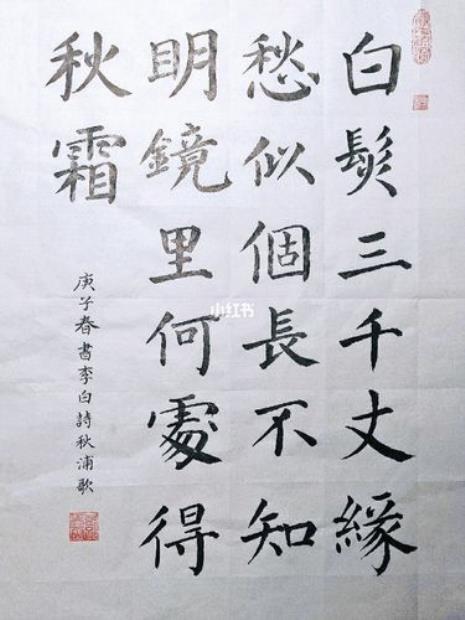 白髮三千丈緣
愁似個長不知
明鏡里何處得
秋霜
庚子春書李白詩秋浦歌
小红书